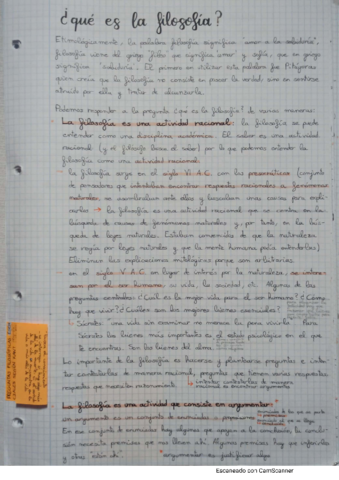 ¿qué es la filosofía?
Etimológicamente, la palabra filosofía significa "amor a la sabiduría",
filosofía viene del griego "filos" que significa amor y sofía, que en griego
significa "sabiduría". El primero en utilizar esta palabra fue Pitágoras
quien creía que la filosofía no consiste en poseer la verdad sino en sentirse
atraído por ella y tratar de alcanzarla.
Podemos responder a la pregunta ¿qué es la filosofía? de varias maneras:
La filosofía es una actividad racional: la filosofía se puede
entender como una disciplina académica. El saber es una actividad
racional (y el filósofo busca el saber) por lo que podemos entender la
filosofía como una actividad racional.
la filosofía surge en el siglo VI a.C. con los presocráticos (conjunto
de pensadores que intentaban encontrar respuestas racionales a fenómenos
naturales, se asombraban ante ellos y buscaban unas causas para expli-
carlos → la filosofía es una actividad racional que se centra en la
búsqueda de causas de fenómenos naturales y, por tanto, en la bús-
queda de leyes naturales. Estaban convencidos de que la naturaleza
se regía por leyes naturales y que la mente humana podía entenderlas)
Eliminan las explicaciones mitológicas porque son arbitrarias
en el siglo V a.C. en lugar de interés por la naturaleza, se intere-
san por el ser humano, su vida, la sociedad, et. Algunas de las
preguntas centrales: ¿Cuál es la mejor vida para el ser humano? ¿Cómo
hay que vivir? ¿Cuáles son los mejores bienes esenciales?
Sócrates: una vida sin examinar no merece la pena vivirla. Para
Sócrates los bienes más importantes es el estado psicológico en el que
te encuentras. Son los bienes del alma.
Lo importante de la filosofía es hacerse y plantearse preguntas e inten-
tar contestarlas de manera racional, preguntas que tienen varias respuestas
respuestas que necesitan razonamiento.
La filosofía es una actividad que consiste en argumentar:
un argumento es un conjunto de enunciados
En ese conjunto de enunciados hay algunos que apoyan a la conclusión, la conclu-
sión necesita premisas que nos lleven ahí. Algunas premisas hay que inferirlas
y otras "están ahí".
argumentar es justificar algo
Escaneado con CamScanner